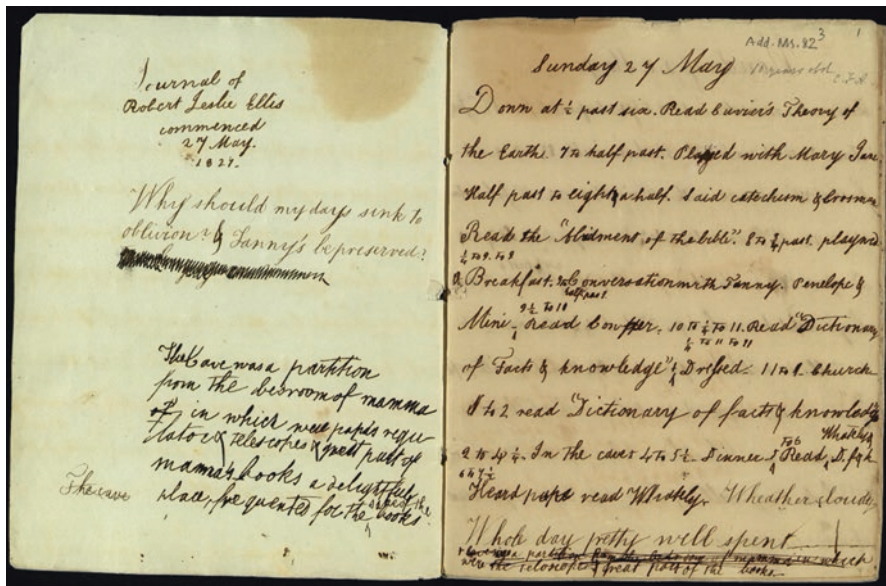 Journal of
Robert Leslie Ellis
commenced
27 May.
1827.
Why should my days sink to
oblivion? & Fanny's be preserved?
The Cave was a partition
from the bedroom of mamma
in which were papa's regu
lator & telescopes & great part of
mama's books a delightful
place, frequented for the books
The cave
Add. Ms. 82 3
1
10 years old
Sunday 27 May
Down at ½ past six. Read Cuvier's Theory of
the Earth. 7 to half past. Played with Mary Jane
Half past to eight & a half. Said catechism &
Read the "of the bible". 8 to ¾ past. played
¼ to 9. to 9
Breakfast. Conversation with Fanny. Penelope &
half past
9½ to 10
Mini Read Cowper. 10 to ¼ to 11. Read "Dictionary
¼ to 11 to 11
of Facts & knowledge" & Dressed. 11 to 1. Church
1 to 2 read "Dictionary of facts & knowledge
to 6 Whately &
2 to 4¼. In the cave 4 to 5½. Dinner Read D. f & k
6 to 7½
Heard papa read Whately. Wheather cloudy
Whole day pretty well spent
was a partition from the bedroom of mamma in which
were the telescopes & great part of the books.